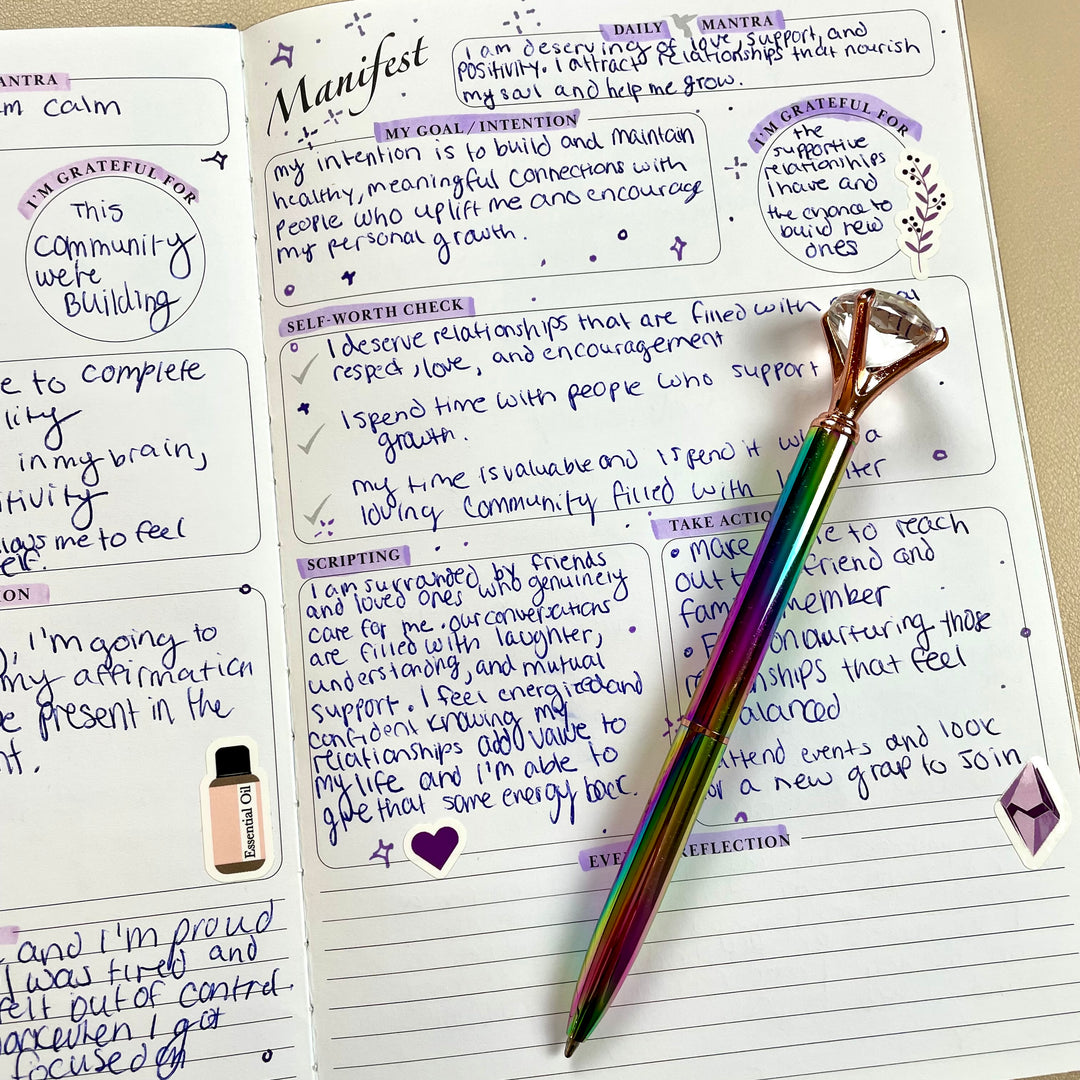 ANTRA
m calm
I'M GRATEFUL FOR
This
community
we're
Building
e to complete
lity
in my brain,
itivity
lows me to feel
elf.
ON
, I'm going to
my affirmation
e present in the
nt.
Essential Oil
and I'm proud
I was tired and
felt out of control.
when I got
focused on
Manifest
DAILY MANTRA
I am deserving of love, support, and
positivity. I attract relationships that nourish
my soul and help me grow.
MY GOAL / INTENTION
my intention is to build and maintain
healthy, meaningful connections with
people who uplift me and encourage
my personal growth.
I'M GRATEFUL FOR
the
supportive
relationships
I have and
the chance to
build new
ones
SELF-WORTH CHECK
I deserve relationships that are filled with
respect, love, and encouragement
I spend time with people who support
growth.
my time is valuable and I spend it wi a
loving community filled with l ter
SCRIPTING
I am surrounded by friends
and loved ones who genuinely
care for me. our conversations
are filled with laughter,
understanding, and mutual
support. I feel energized and
confident knowing my
relationships add value to
my life and I'm able to
give that same energy back.
TAKE ACTIO
• Make e to reach
out t friend and
fam member
• F on nurturing those
re nships that feel
alanced
attend events and look
or a new group to join
EVE REFLECTION